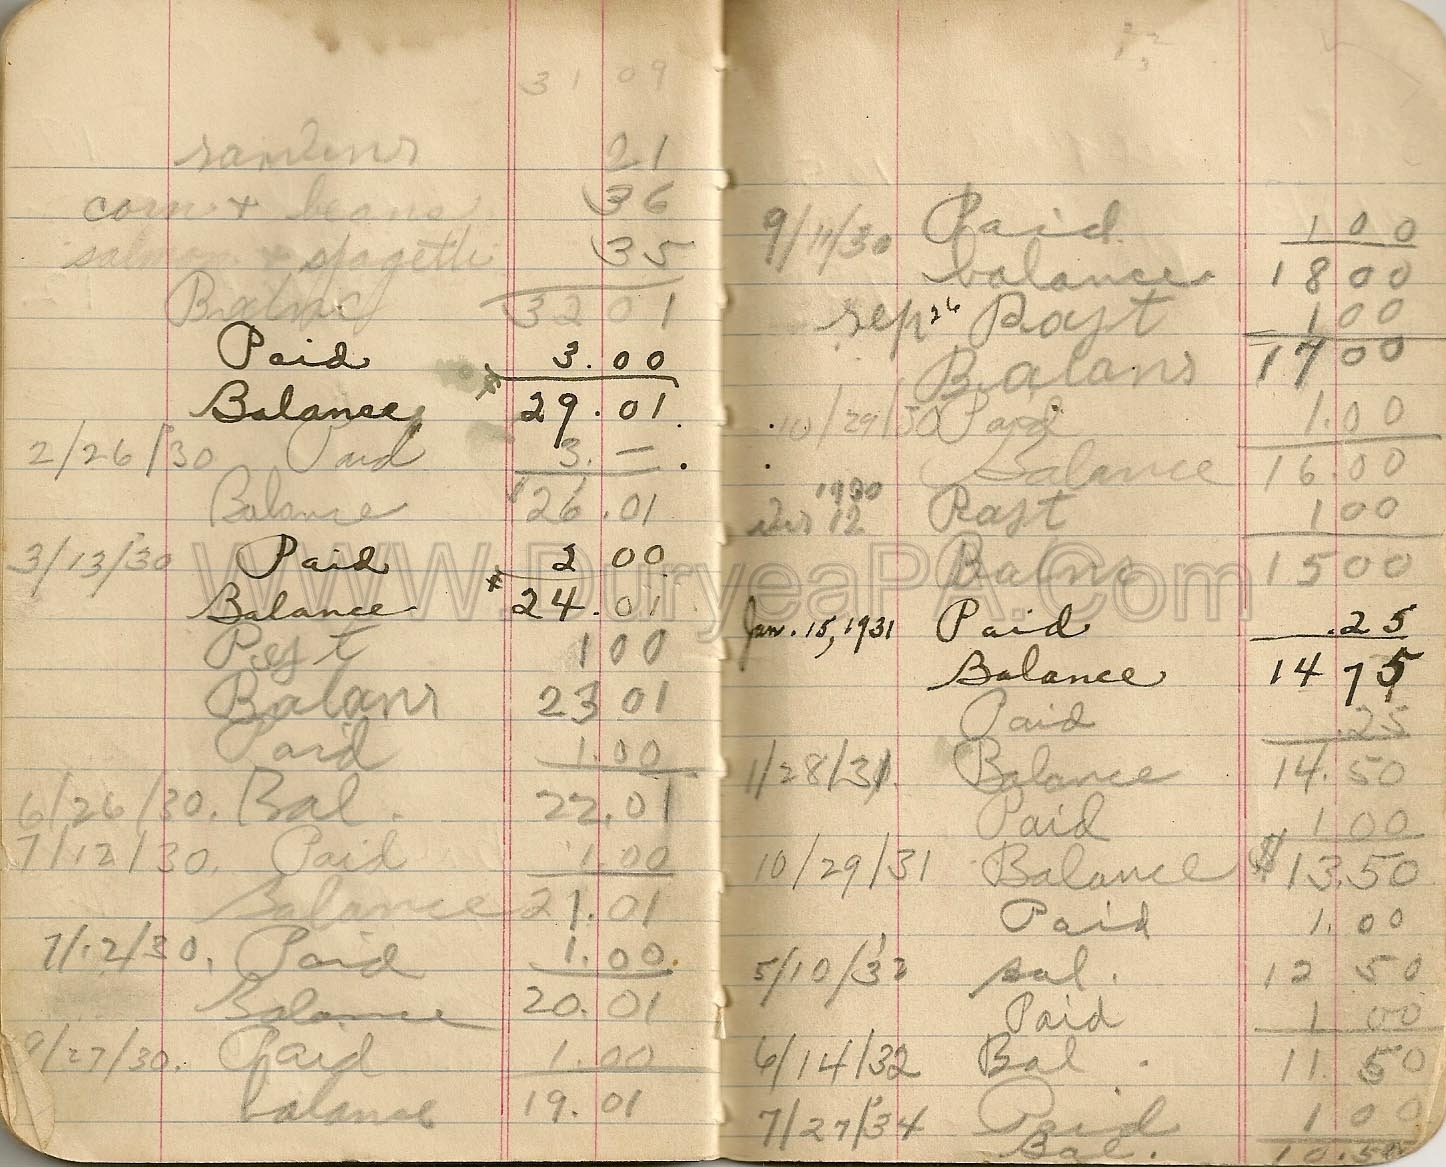 31 09
sardens 21
corn + beans 36
salmon + spagetti 35
Balnc 32 01
Paid 3.00
Balance 29.01
2/26/30 Paid 3.—
Balance $26.01
3/13/30 Paid 2 00
Balance $24.01
Past 1 00
Balans 23 01
Paid 1.00
6/26/30. Bal. 22.01
7/12/30. Paid 1.00
Balance 21.01
7/12/30. Paid 1.00
Balance 20.01
9/27/30. Paid 1.00
balance 19.01
9/11/30 Paid 1 00
balance 18 00
sep 26 Past 1 00
Balans 17 00
10/29/30 Paid 1.00
Balance 16.00
1930
12 Past 1 00
Balnc 15 00
Jan. 15, 1931 Paid .25
Balance 14 75
Paid .25
1/28/31. Balance 14.50
Paid 1 00
10/29/31 Balance $13.50
Paid 1.00
5/10/32 Bal. 12 50
Paid 1 00
6/14/32 Bal. 11.50
7/27/34 Paid 1 00
Bal. 10.50
WWW.DuryeaPA.Com